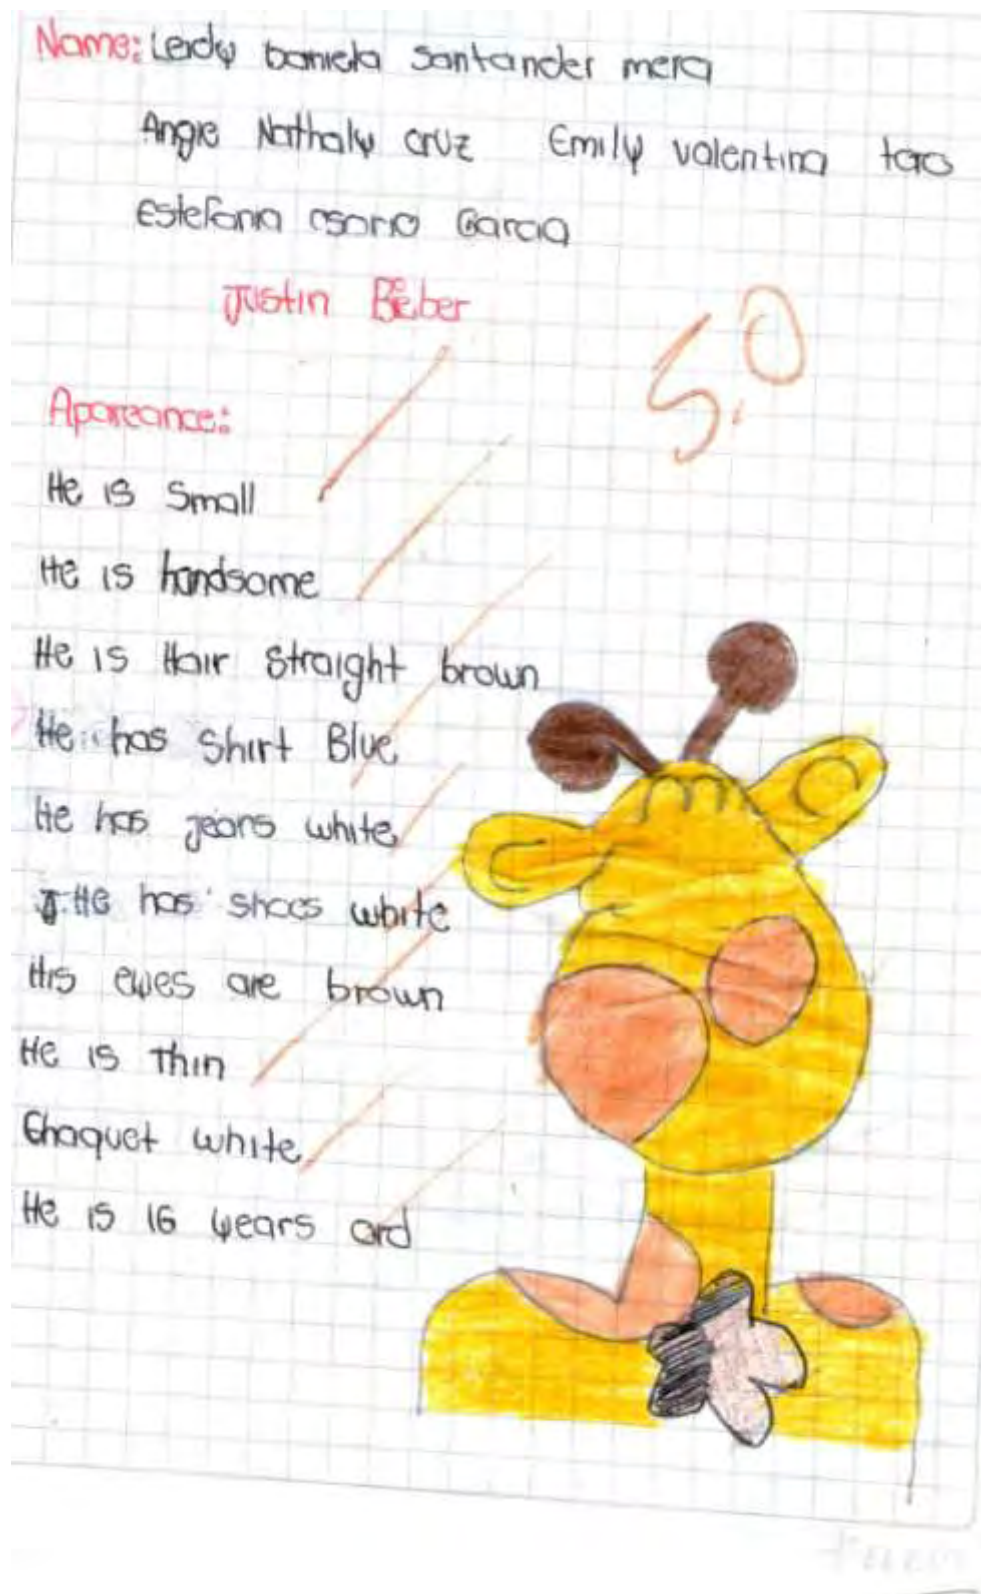 Name: Leidy daniela santander mera
Angie Nathaly cruz Emily valentina toro
Estefania osorio Garcia
Justin Bieber
5.0
Apareance:
He is Small
He is handsome
He is Hair Straight brown
He has Shirt Blue
He has jeans white
He has shoes white
His eyes are brown
He is Thin
Chaquet white
He is 16 years ord